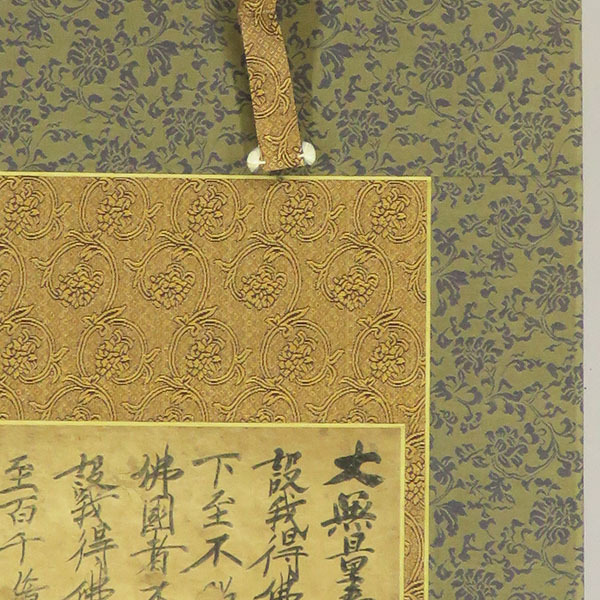 大無量壽
設我得佛
下至不
佛國者不
設我得佛
至百千億